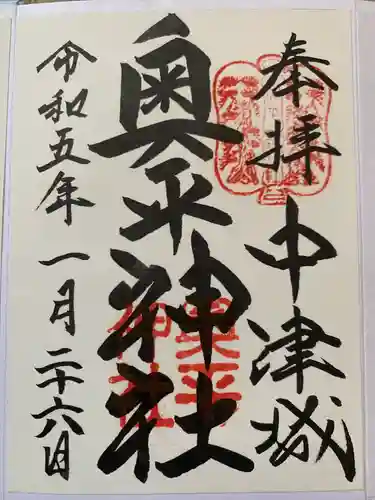 奉拝 中津城
奥平神社
令和五年 一月二十六日
奥平
神社